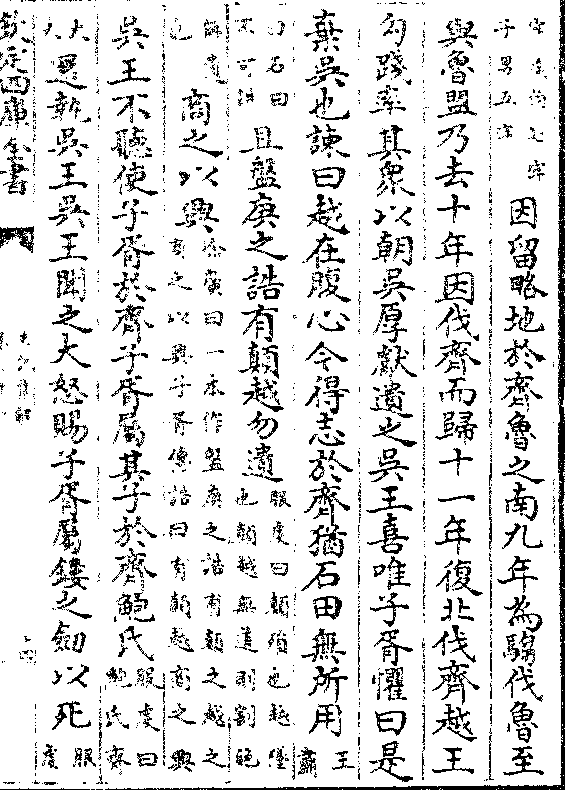 子男五牢
因留略地於齊魯之南九年為騶伐魯至
與魯盟乃去十年因伐齊而歸十一年復北伐齊越王
句踐率其衆以朝吳厚獻遺之吳王喜唯子胥懼曰是
棄吳也諫曰越在腹心今得志於齊猶石田無所用
王
肅
曰石田
不可耕
且盤庚之誥有顛越勿遺
服虔曰顛隕也越墜
也顛越無道則割絕
無遺
也
商之以興
徐廣曰一本作盤庚之誥有顛之越之
商之以興子胥傳誥曰有顛越商之興
吳王不聽使子胥於齊子胥屬其子於齊鮑氏
服虔曰
鮑氏齊
大
夫
還報吳王吳王聞之大怒賜子胥屬鏤之劍以死
服
虔
欽定四庫全書